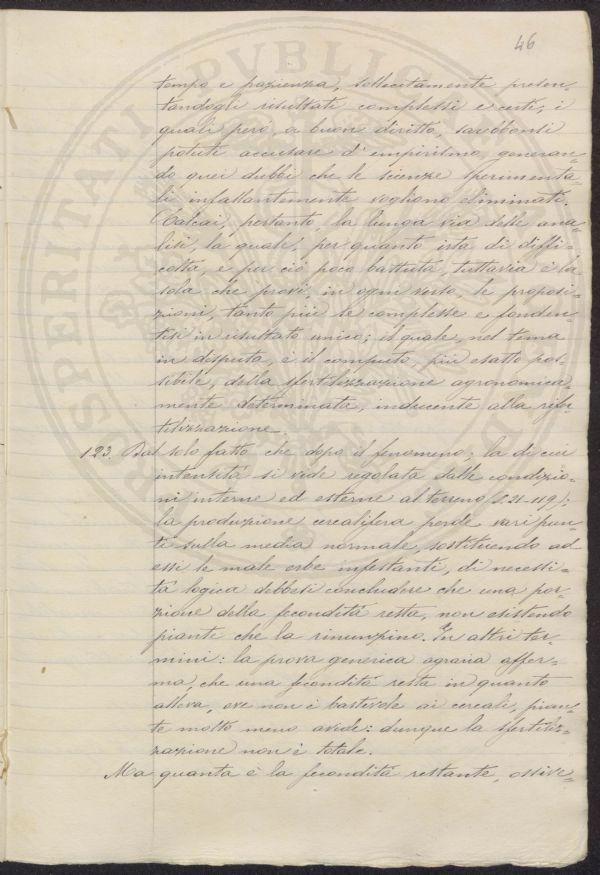 46
tempo e pazienza, sollecitamente presen-
tandogli risultati complessi e certi, i
quali però, a buon diritto, sarebbonsi
potute accusare d'empirismo, generan-
do quei dubbi che le scienze sperimenta-
li infallantemente vogliono eliminati.
Calcai, pertanto, la lunga via delle ana-
lisi, la quale, per quanto irta di diffi-
coltà, e per ciò poco battuta, tuttavia è la
sola che provi, in ogni verso, le proposi-
zioni, tanto più se complesse e fonden-
tisi in risultato unico; il quale, nel tema
in disputa, è il computo, più esatto pos-
sibile, della sfertilizzazione agronomica-
mente determinata, inducente alla rifer-
tilizzazione.
123. Dal solo fatto che dopo il fenomeno, la di cui
intensità si vide regolata dalle condizio-
ni interne ed esterne al terreno (§. 21-119);
la produzione cerealifera perde vari pun-
ti sulla media normale, sostituendo ad
essi le male erbe infestanti, di necessi-
tà logica debbesi concludere che una por-
zione della fecondità resta, non esistendo
piante che la rinunzino. In altri ter-
mini: la prova generica agraria affer-
ma, che una fecondità resta in quanto
alleva, ove non è bastevole ai cereali, pian-
te molto meno avide: dunque la sfertiliz-
zazione non è totale.
Ma quanta è la fecondità restante, ossive-
PROSPERITATI PVBLICAE